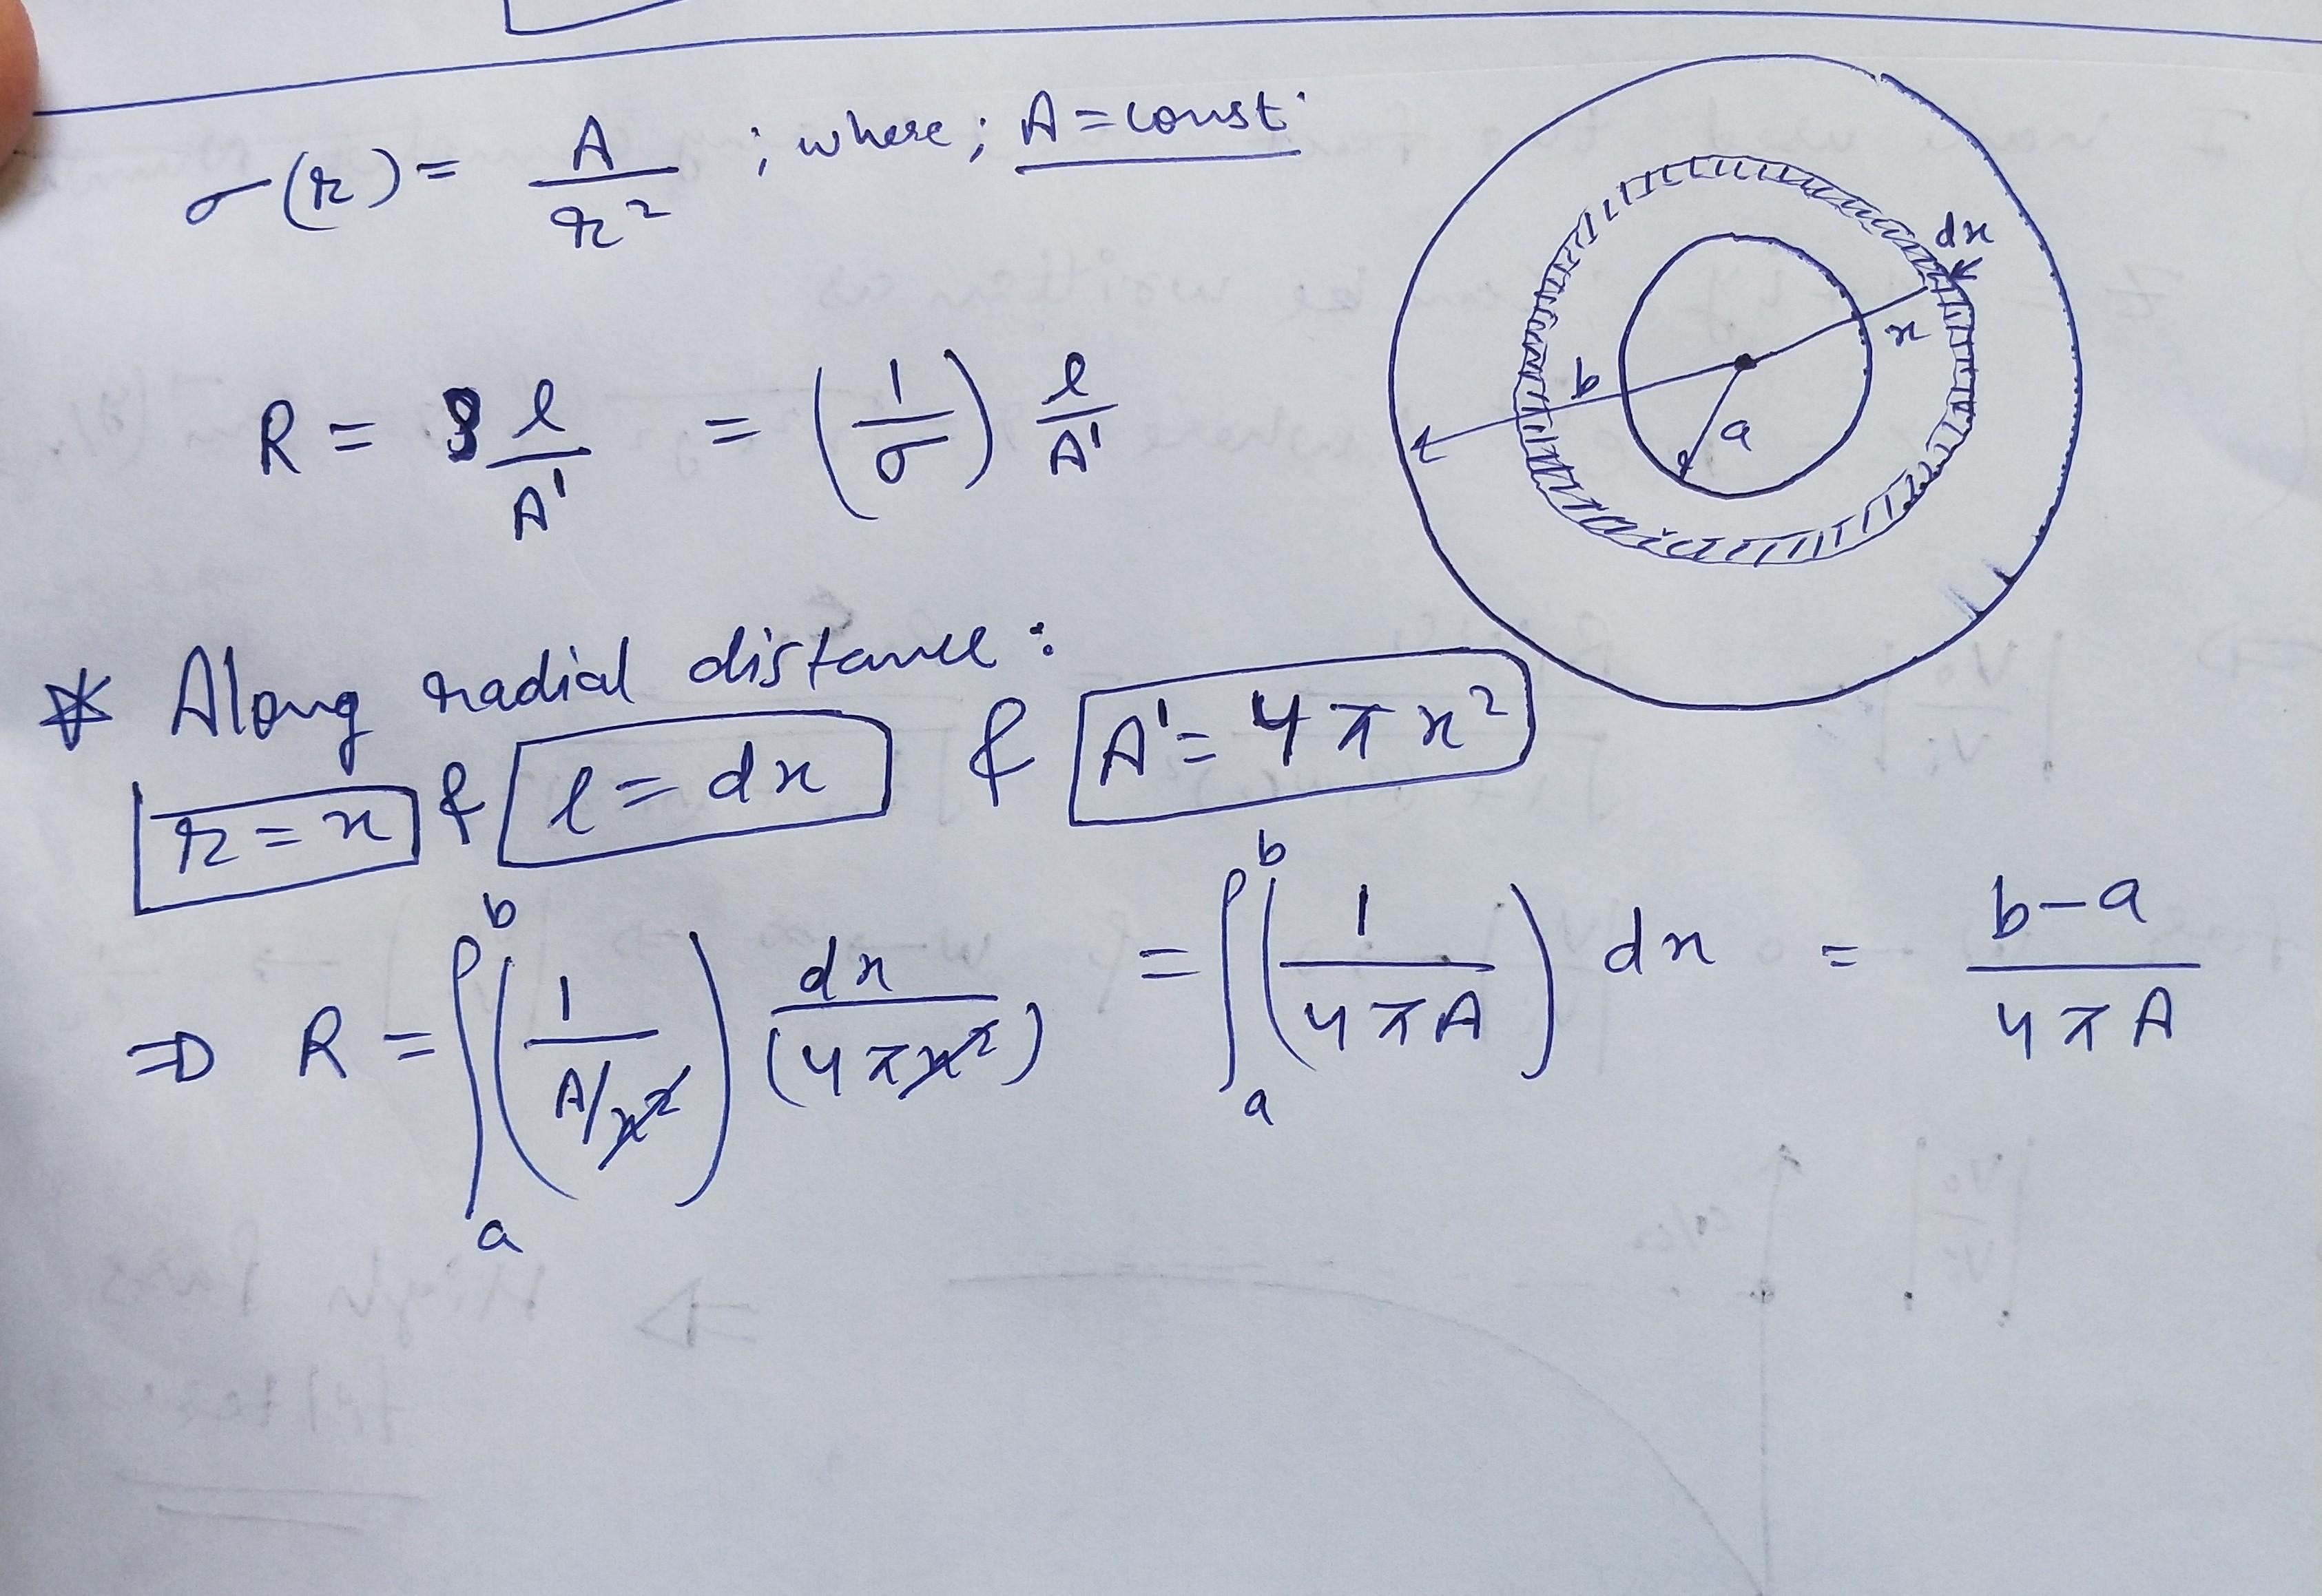 σ(r) = A/r² ; where; A = const.
R = ρ l/A' = (1/σ) l/A'
dx
x
b
a
* Along radial distance:
r = x & l = dx & A' = 4πx²
⇒ R = ∫_a^b (1/(A/x²)) dx/(4πx²) = ∫_a^b (1/(4πA)) dx = (b-a)/(4πA)